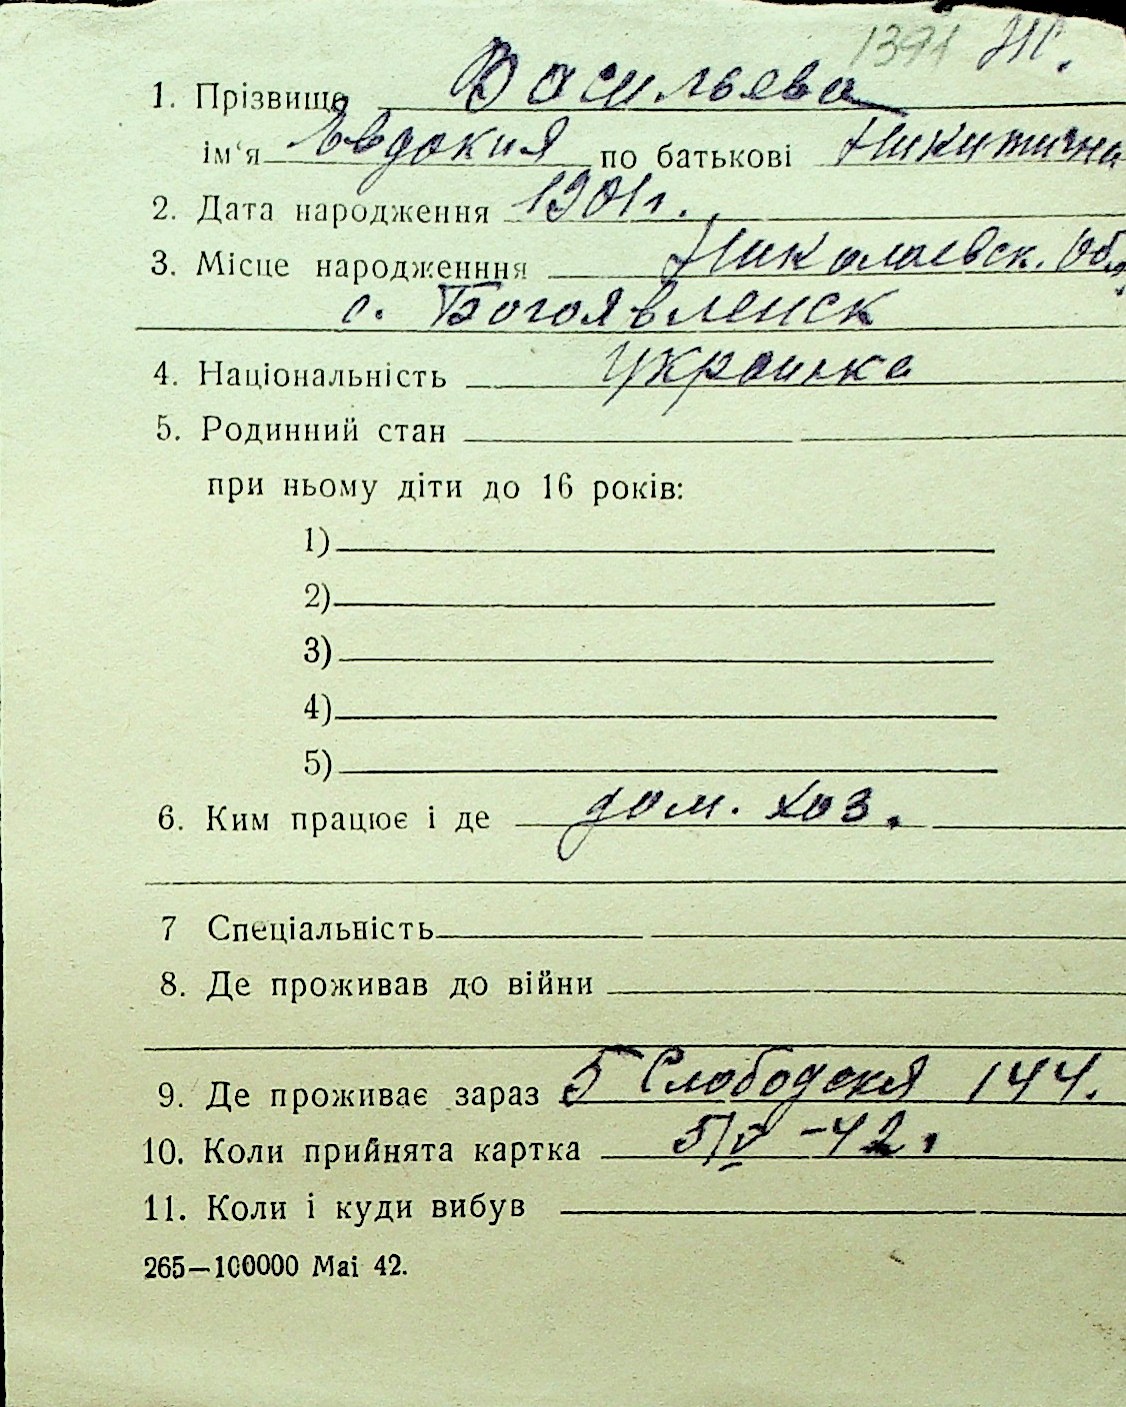 1391 Ж.
1. Прізвище Васильева
ім‘я Евдокия по батькові Никитична
2. Дата народження 1901 г.
3. Місце народженння Николаевск. Обл.
с. Богоявленск
4. Національність Украинка
5. Родинний стан
при ньому діти до 16 років:
1)
2)
3)
4)
5)
6. Ким працює і де дом. хоз.
7 Спеціальність
8. Де проживав до війни
9. Де проживає зараз 5 Слободская 144.
10. Коли прийнята картка 5/V-42.
11. Коли і куди вибув
265—100000 Mai 42.